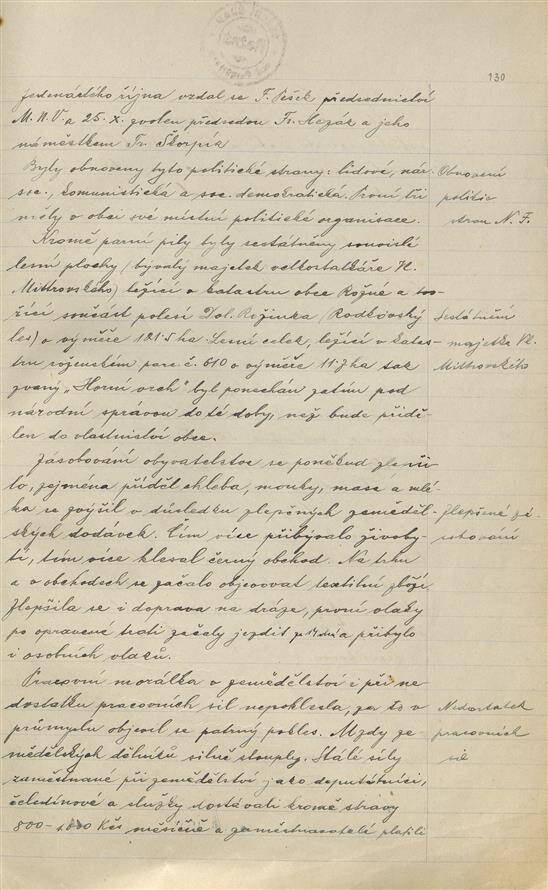 130
jedenáctého října vzdal se F. Pešek předsednictví
M.N.V. a 25.X. zvolen předsedou Fr. Mazák a jeho
náměstkem Fr. Škorpík
Byly obnoveny tyto politické strany: lidová, nár.
soc., komunistická a soc. demokratická. První tři
měly v obci své místní politické organisace.
Obnovení
politic
stran N. F.
Kromě parní pily byly sestátněny souvislé
lesní plochy (bývalý majetek velkostatkáře Vl.
Mittrovského) ležící v katastru obce Rožné a
součást polesí Dol. Rožinka (Rodkovský
les) o výměře 121.5 ha. Lesní celek, ležící v katas-
tru roženském parc. č. 610 o výměře 11.7 ha tak
zvaný „Horní vrch" byl ponechán zatím pod
národní správou do té doby, než bude přidě-
len do vlastnictví obce.
Sestátnění
majetku Vl.
Mittrovského
Zásobování obyvatelstva se poněkud zlepši
lo, zejména příděl chleba, mouky, masa a mlé-
ka se zvýšil v důsledku zlepšených zeměděl-
ských dodávek. Čím více přibývalo živoby-
tí, tím více klesal černý obchod. Na trhu
a v obchodech se začalo objevovat textilní zboží.
Zlepšila se i doprava na dráze, první vlaky
po opravené trati začaly jezdit a přibylo
i osobních vlaků.
Zlepšené zá-
sobování
Pracovní morálka v zemědělství i při ne
dostatku pracovních sil nepoklesla, za to v
průmyslu objevil se patrný pokles. Mzdy ze-
mědělských dělníků silně stouply. Stálé síly
zaměstnané při zemědělství jako deputátníci,
čeledínové a služky dostávali kromě stravy
800-1.000 Kčs měsíčně a zaměstnavatelé platili
Nedostatek
pracovních
sil